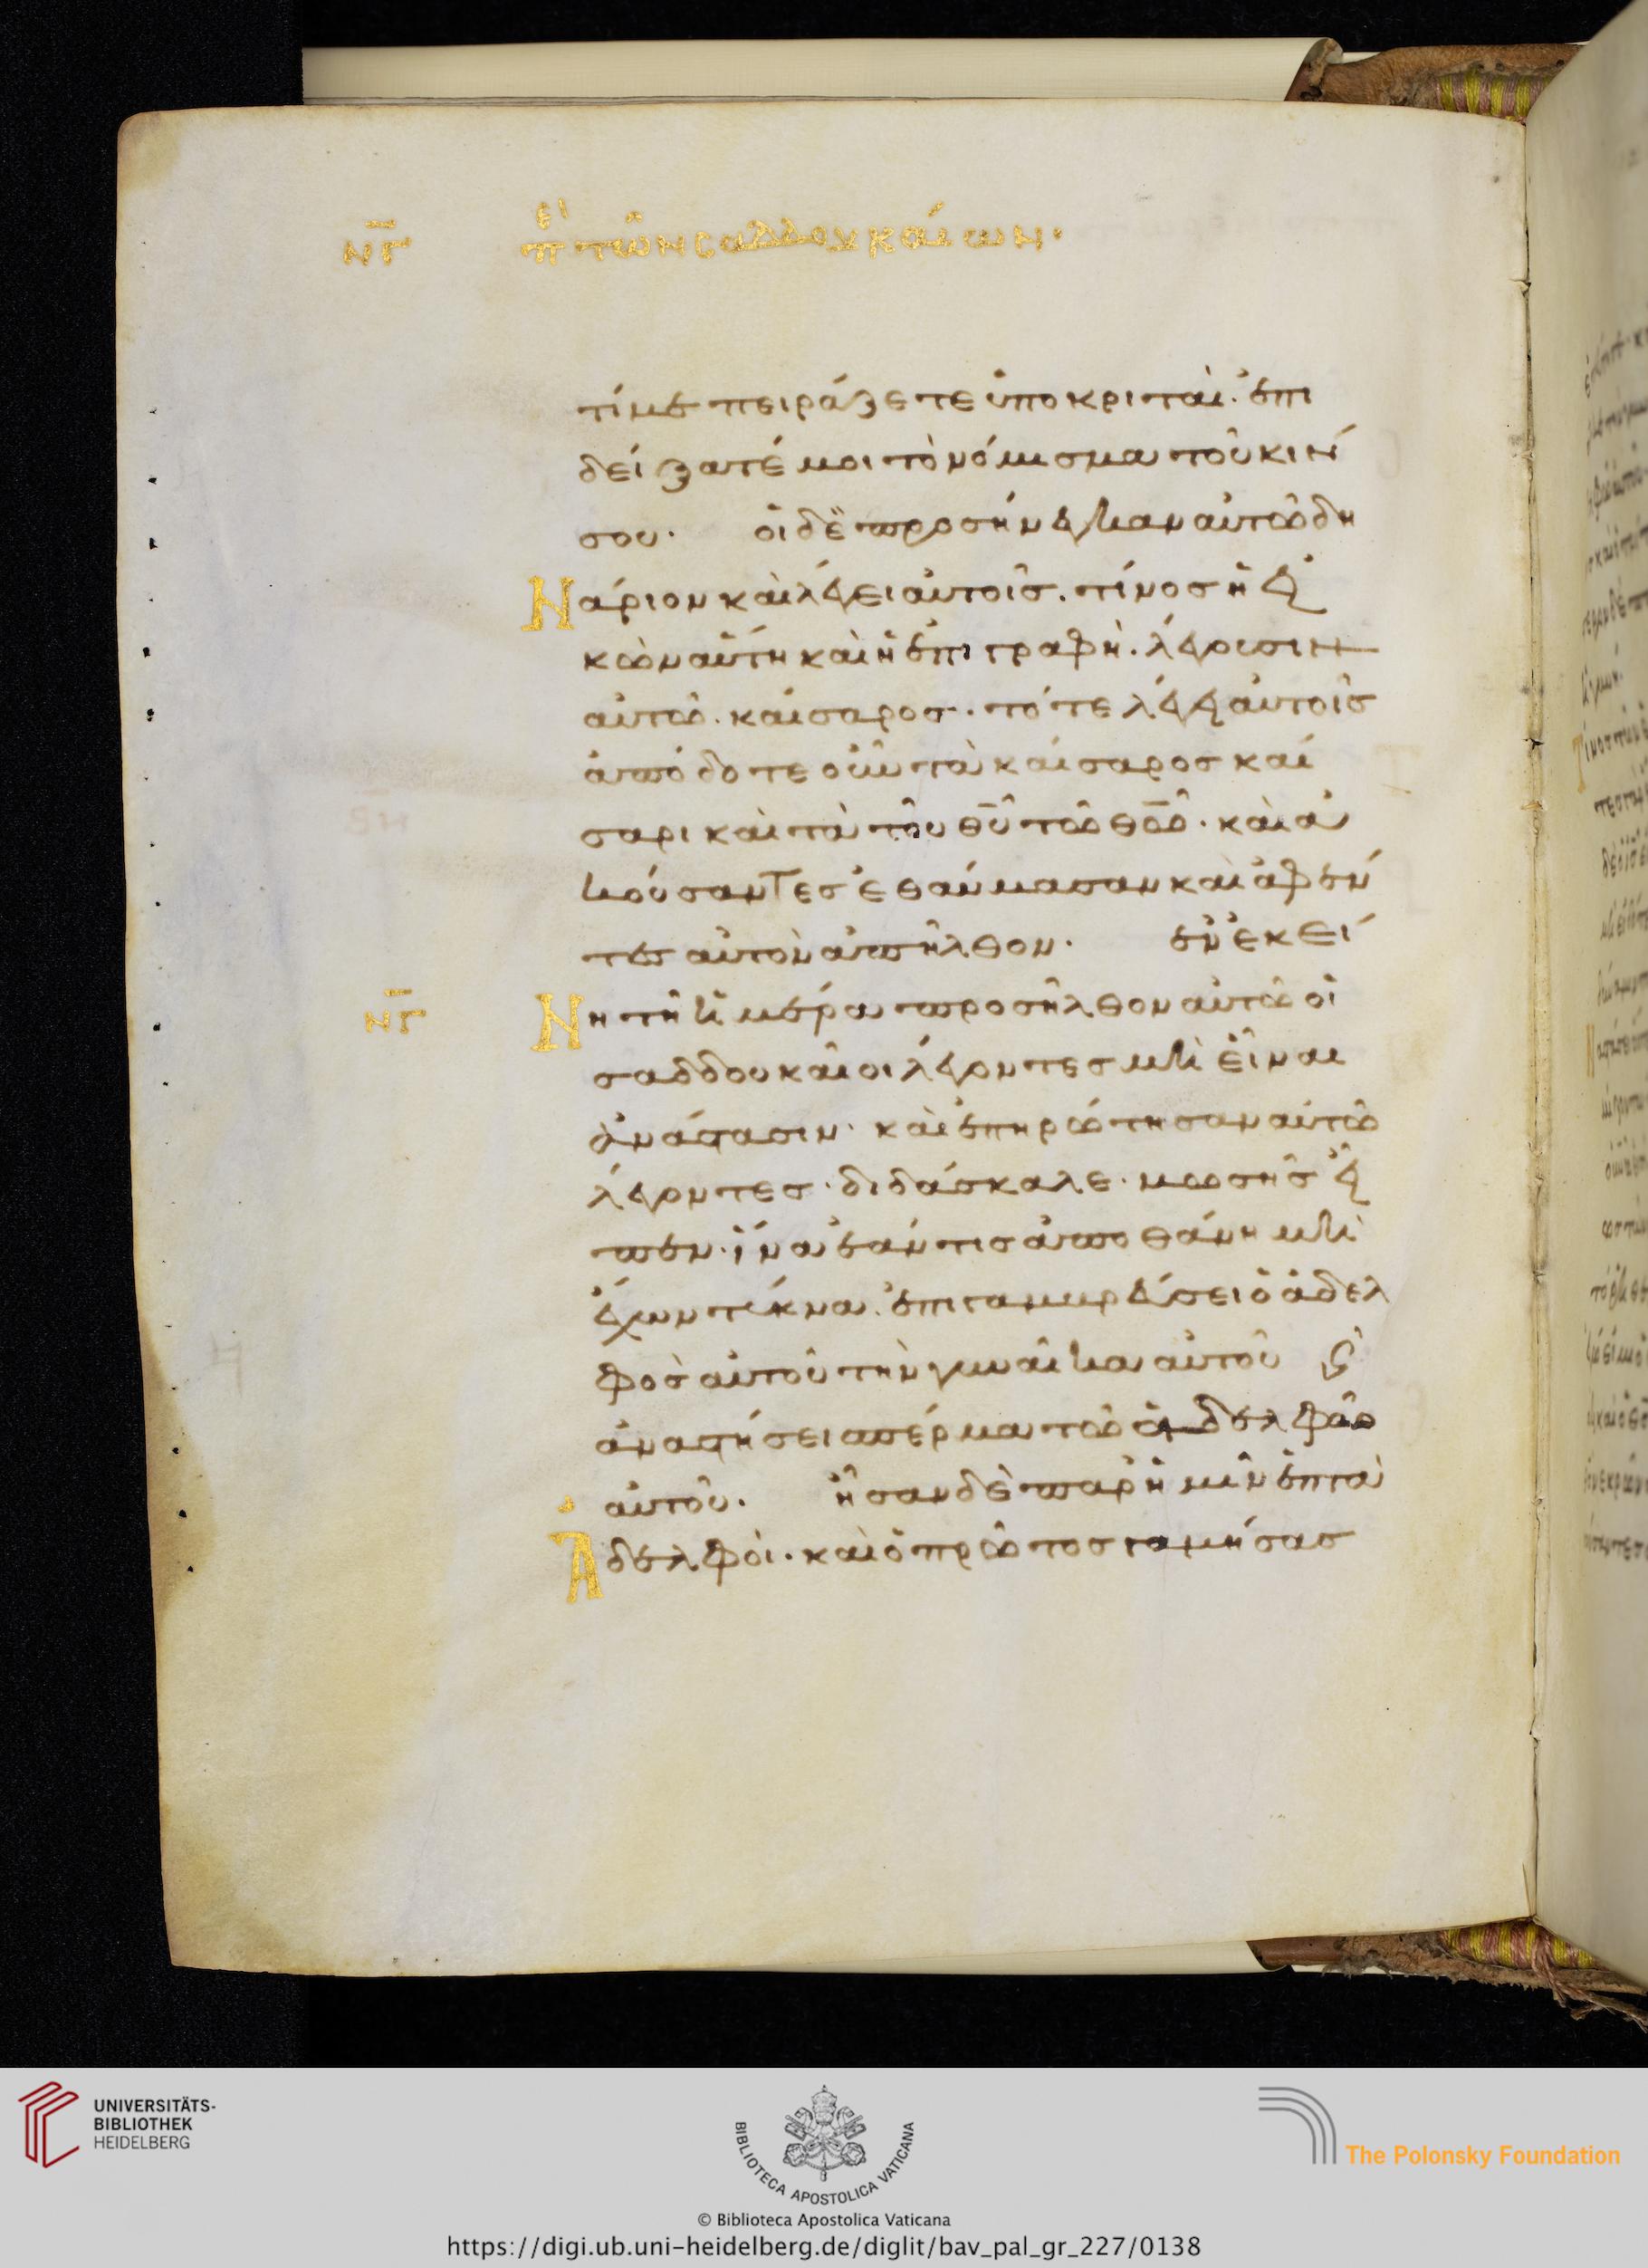 ΝΓ
πε τῶν Σαδδουκαίων.
τί με πειράζετε ὑποκριταὶ. ἐπι
δείξατέ μοι τὸ νόμισμα τοῦ κίν
σου. οἱ δὲ προσήνεγκαν αὐτῶ δη
Νάριον καὶ λέγει αὐτοῖς. τίνος ἡ εἰ
κὼν αὕτη καὶ ἡ ἐπιγραφὴ. λέγουσιν
αὐτῶ. καίσαρος. τότε λέγει αὐτοῖς
ἀπόδοτε οὖν τὰ καίσαρος καί
σαρι καὶ τὰ τοῦ θῦ τῶ θῶ. καὶ ἀ
κούσαντες ἐθαύμασαν καὶ ἀφέν
τες αὐτὸν ἀπῆλθον. ἐν ἐκεί
ΝΓ
Νη τῆ ἡμέρα προσῆλθον αὐτῶ οἱ
σαδδουκαῖοι λέγοντες μὴ εἶναι
ἀνάστασιν. καὶ ἐπηρώτησαν αὐτῶ
λέγοντες. διδάσκαλε. μωσῆς εἶ
πεν. ἵνα ἐάν τις ἀποθάνη μὴ
ἔχων τέκνα. ἐπιγαμβρεύσει ὁ ἀδελ
φὸς αὐτοῦ τὴν γυναῖκα αὐτοῦ ϛ
ἀναστήσει σπέρμα τῶ ἀδελφῶ
αὐτοῦ. ἦσαν δὲ παρ' ἡμῖν ἑπτὰ
Ἀδελφοὶ. καὶ ὁ πρῶτος γαμήσας
UNIVERSITÄTS-
BIBLIOTHEK
HEIDELBERG
BIBLIOTECA APOSTOLICA VATICANA
The Polonsky Foundation
© Biblioteca Apostolica Vaticana
https://digi.ub.uni-heidelberg.de/diglit/bav_pal_gr_227/0138